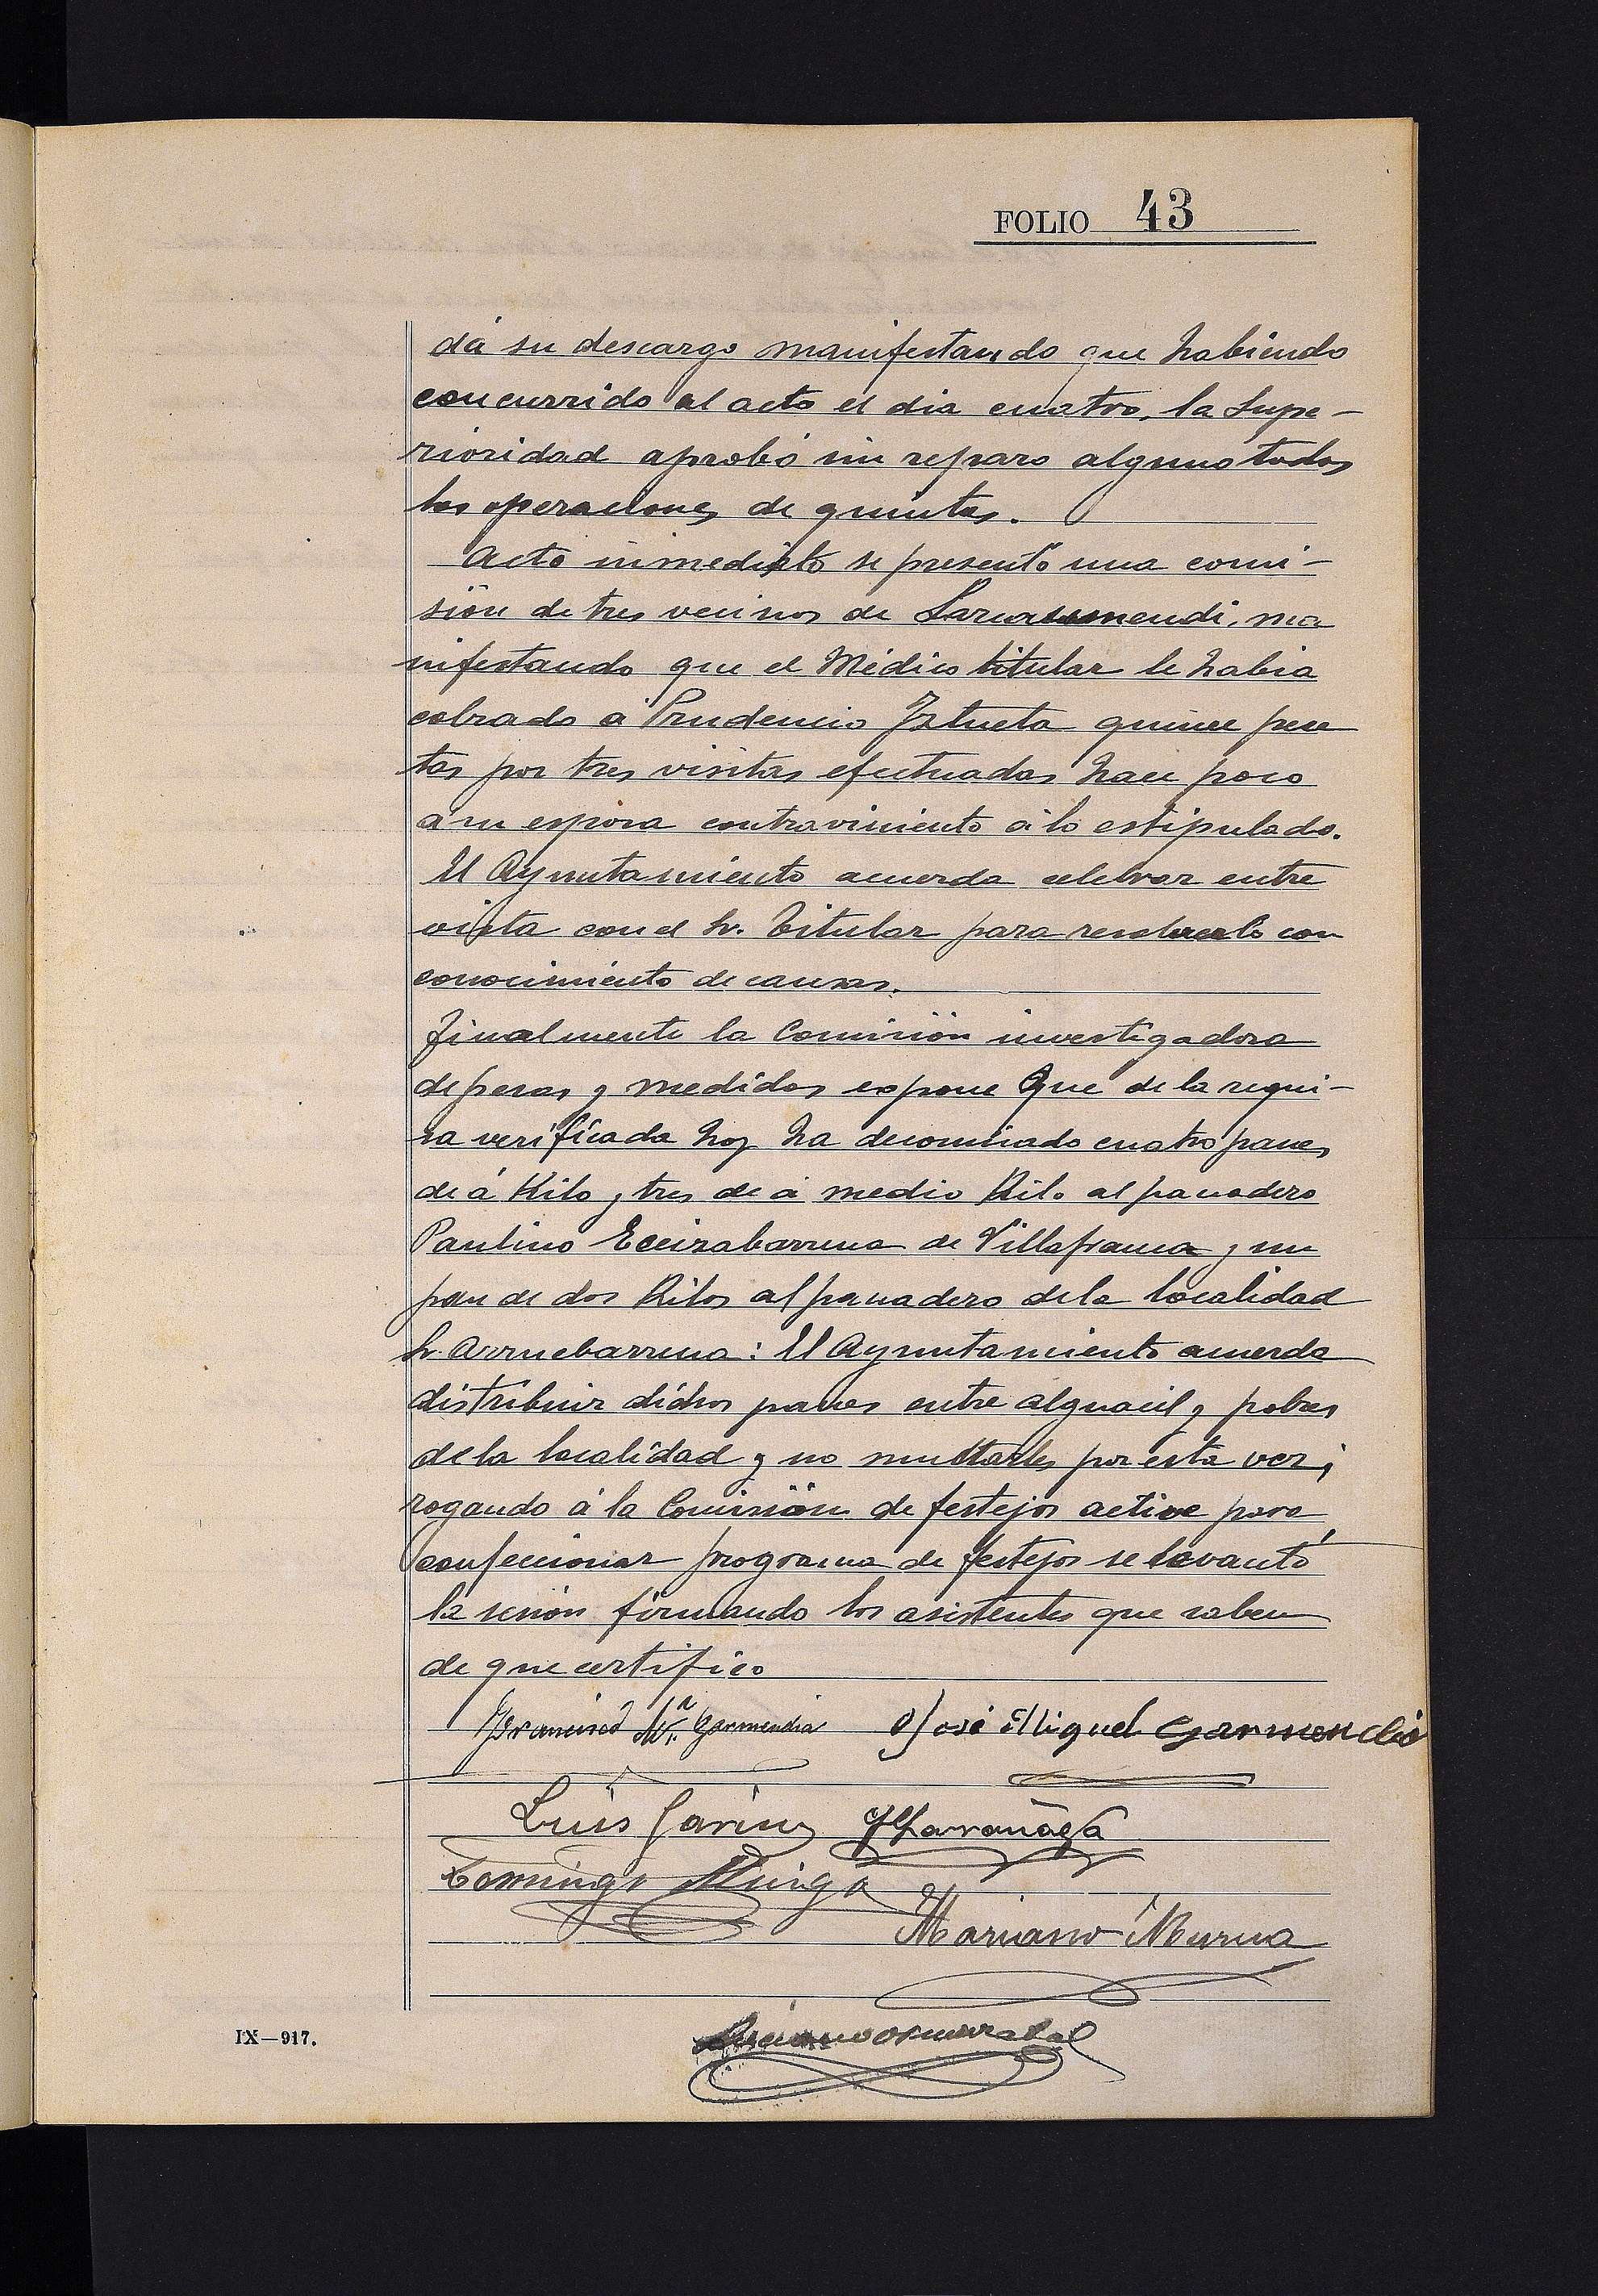 FOLIO 43
dá su descargo manifestando que habiendo
concurrido al acto el dia cuatro, la Supe-
rioridad aprobó sin reparo alguno todas
las operaciones de quintas.
Acto inmediato se presentó una comi-
sión de tres vecinos de mendi, ma
nifestando que el Médico titular le habia
cobrado á Prudencio Iztueta quince pese
tas por tres visitas efectuadas hace poco
á su esposa contraviniento á lo estipulado.
El Ayuntamiento acuerda celebrar entre
vista con el Sr. Titular para resolverlo con
conocimiento de causas.
Finalmente la Comisión investigadora
de pesas y medidas expone que de la requi-
sa verificada hoy ha decomisado cuatro panes
de á Kilo y tres de á medio Kilo al panadero
Paulino Eceizabarrena de Villafranca y un
pan de dos Kilos al panadero de la localidad
Sr. Arruebarrena: El Ayuntamiento acuerda
distribuir dichos panes entre alguacil y pobres
de la localidad y no multarles por esta vez;
rogando á la Comisión de festejos active para
confeccionar programa de festejos se levantó
la sesión firmando los asistentes que saben
de que certifico
Francisco Mª Garmendia José Miguel Garmendia
Luis Garin
Domingo Mariano Murua
IX—917.